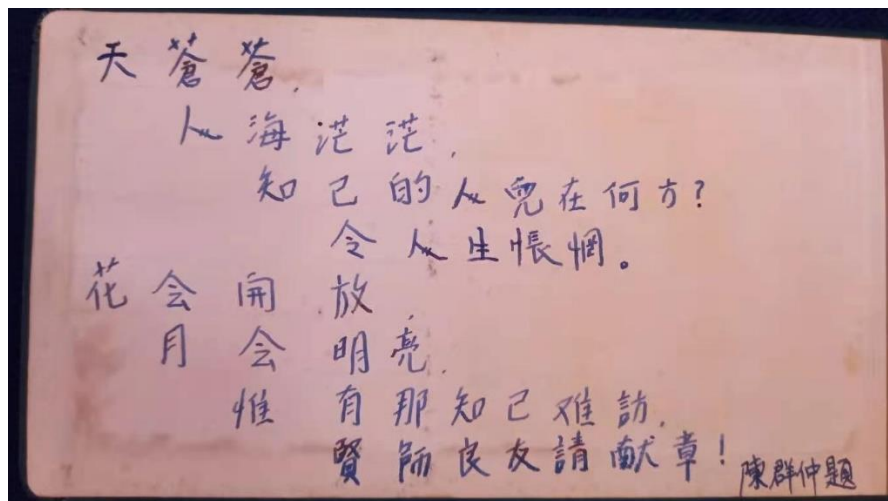 天蒼蒼,
人海茫茫,
知己的人兒在何方?
令人生悵惘。
花会開放,
月会明亮,
惟有那知己难訪,
賢師良友請献章!
陳群仲題